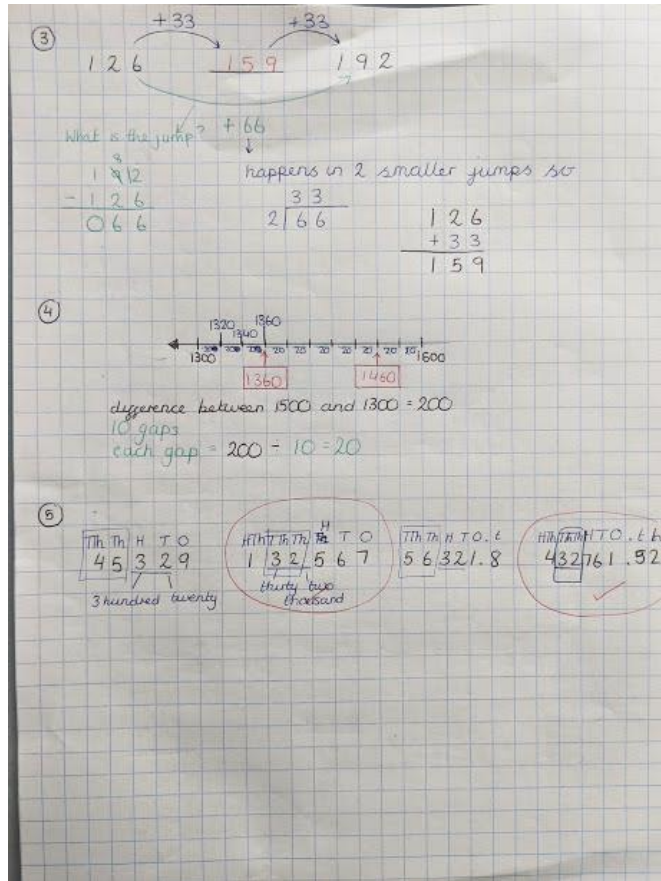 +33 +33
3
126 159 192
What is the jump? + 66
happens in 2 smaller jumps so
8
1 9 12
- 1 2 6
0 6 6
3 3
2 6 6
1 2 6
+ 3 3
1 5 9
4
1320 1340 1360
20 20 20 20 20 20 20
1300 1500
1360 1460
difference between 1500 and 1300 = 200
10 gaps
each gap = 200 ÷ 10 = 20
5
TTh Th H T O
4 5 3 2 9
3 hundred twenty
HTh TTh Th H T O
1 3 2 5 6 7
thirty two
thousand
TTh Th H T O . t
5 6 3 2 1 . 8
HTh TTh Th H T O . t h
4 3 2 7 6 1 . 9 2